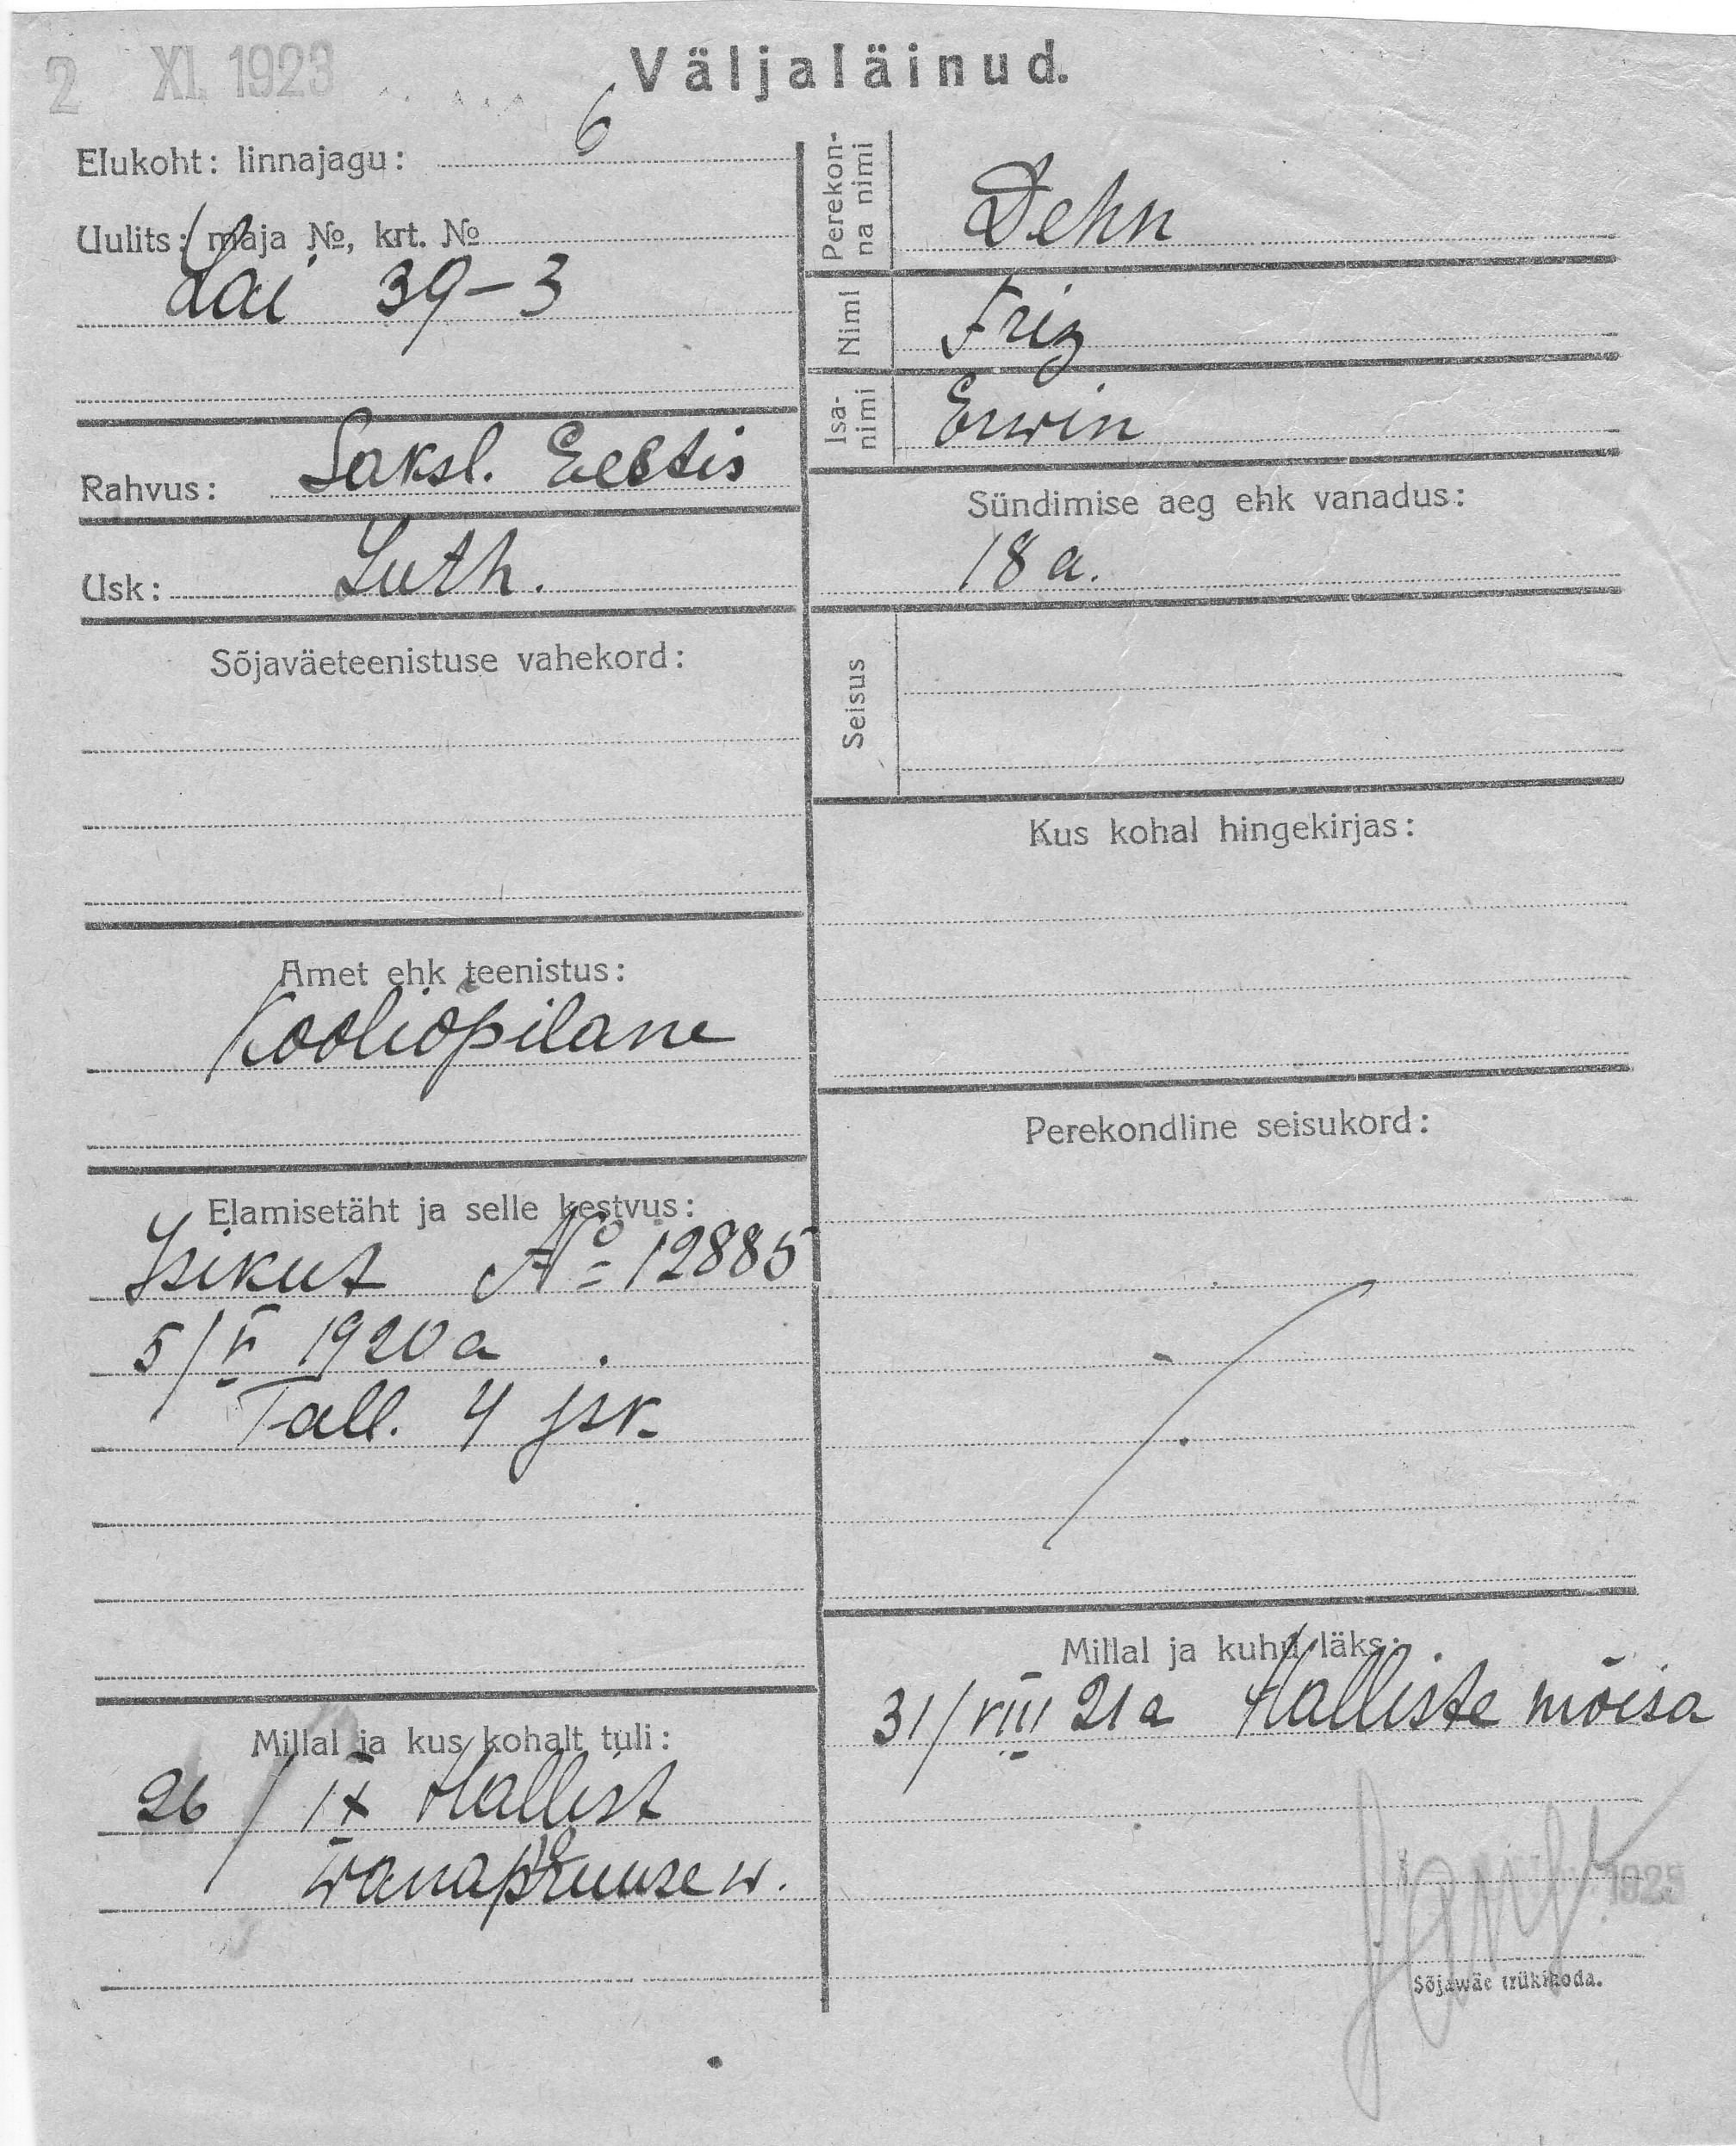 2 XI. 1923
Väljaläinud.
Elukoht: linnajagu: 6
Uulits: maja №, krt. №
Lai 39-3
Rahvus: Saksl. Eestis
Usk: Luth.
Sõjaväeteenistuse vahekord:
Amet ehk teenistus:
Kooliõpilane
Elamisetäht ja selle kestvus:
Isikut № 12885
5/V 1920 a
Tall. 4 jsk.
Millal ja kus kohalt tuli:
26/IX Hallist
w.
Perekonna nimi
Dehn
Nimi
Friz
Isanimi
Erwin
Sündimise aeg ehk vanadus:
18 a.
Seisus
Kus kohal hingekirjas:
Perekondline seisukord:
Millal ja kuhu läks:
31/VIII 21 a Halliste mõisa
Sõjawäe trükikoda.